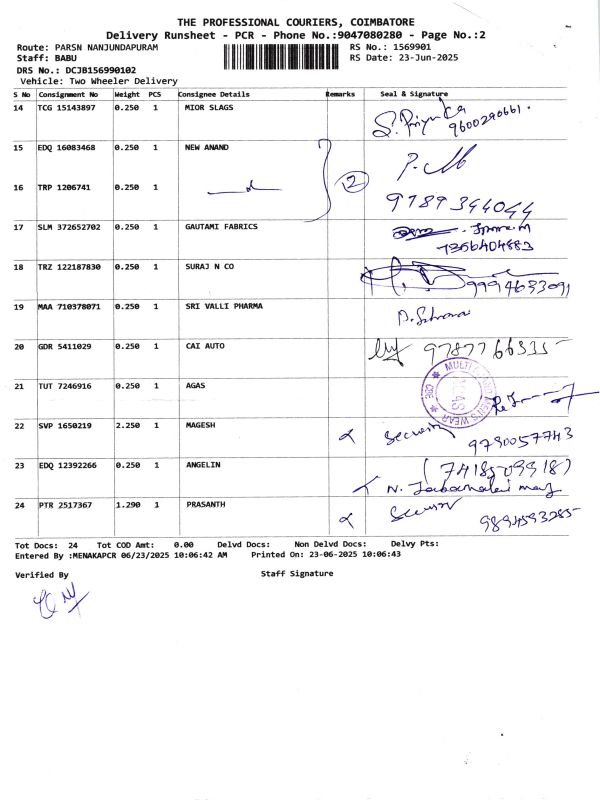 THE PROFESSIONAL COURIERS, COIMBATORE
Delivery Runsheet - PCR - Phone No.:9047080280 - Page No.:2
Route: PARSN NANJUNDAPURAM RS No.: 1569901
Staff: BABU RS Date: 23-Jun-2025
DRS No.: DCJB156990102
Vehicle: Two Wheeler Delivery
S No Consignment No Weight PCS Consignee Details Remarks Seal & Signature
14 TCG 15143897 0.250 1 MIOR SLAGS S. Priyanka
9600290661.
15 EDQ 16083468 0.250 1 NEW ANAND
16 TRP 1206741 0.250 1 2
9789344044
17 SLM 372652702 0.250 1 GAUTAMI FABRICS
7356404883
18 TRZ 122187830 0.250 1 SURAJ N CO
9994633091
19 MAA 710378071 0.250 1 SRI VALLI PHARMA
20 GDR 5411029 0.250 1 CAI AUTO 9787766535
21 TUT 7246916 0.250 1 AGAS
22 SVP 1650219 2.250 1 MAGESH Security
9790057743
23 EDQ 12392266 0.250 1 ANGELIN (7418509918)
24 PTR 2517367 1.290 1 PRASANTH Security
9894593285
Tot Docs: 24 Tot COD Amt: 0.00 Delvd Docs: Non Delvd Docs: Delvy Pts:
Entered By :MENAKAPCR 06/23/2025 10:06:42 AM Printed On: 23-06-2025 10:06:43
Verified By Staff Signature